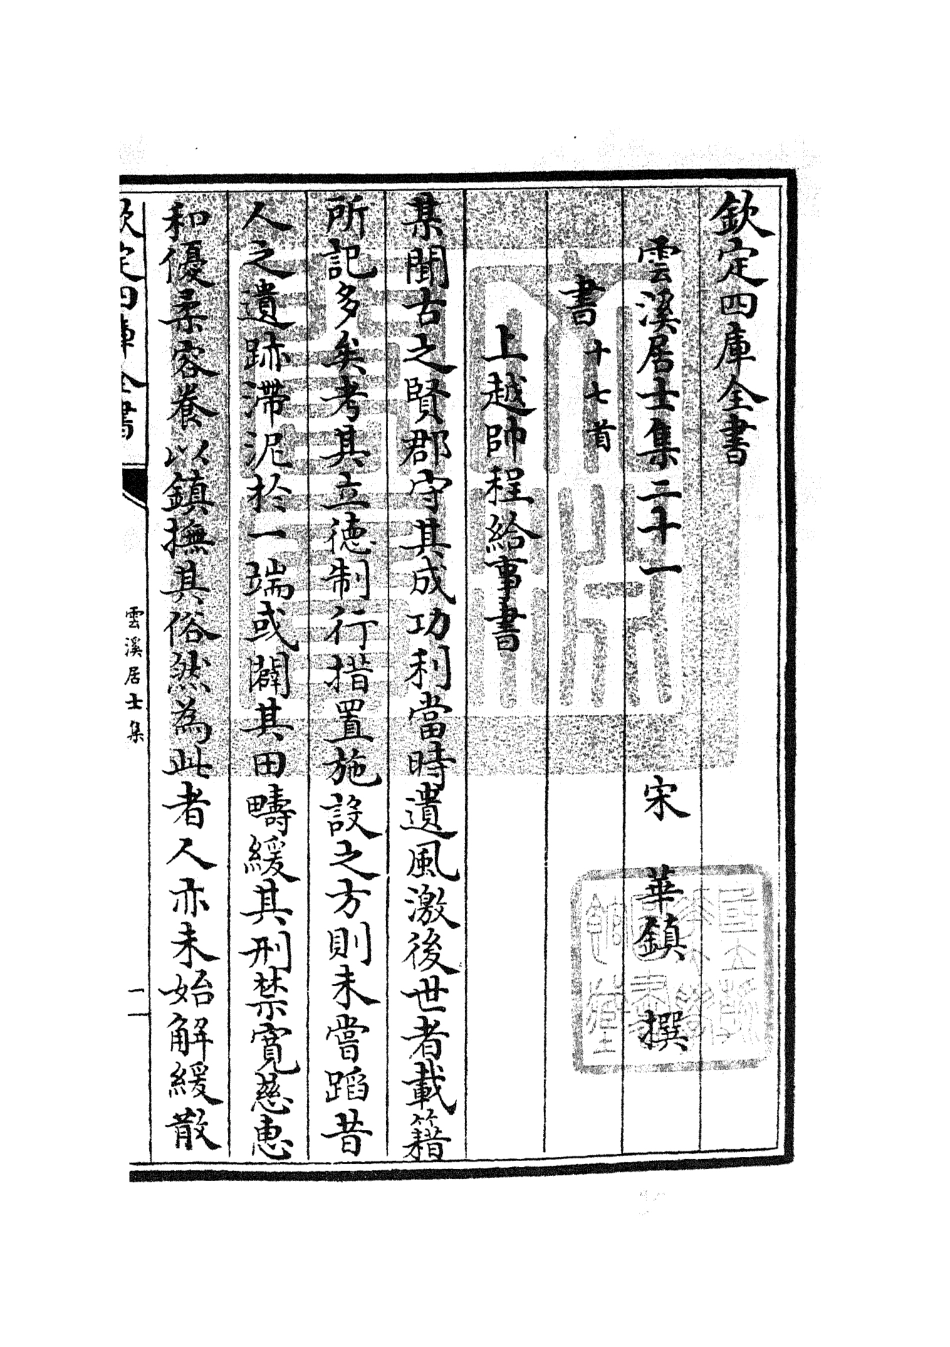 欽定四庫全書
雲溪居士集二十一
宋 華鎮 撰
書十七首
上越帥程給事書
某聞古之賢郡守其成功利當時遺風激後世者載籍
所記多矣考其立德制行措置施設之方則未嘗蹈昔
人之遺跡滯泥於一端或闢其田疇緩其刑禁寛慈惠
和優柔容養以鎮撫其俗然為此者人亦未始解緩散
欽定四庫全書
雲溪居士集
一